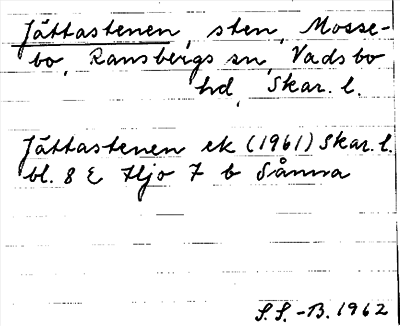 Jättastenen, sten, Mosse-
bo, Ransbergs sn, Vadsbo
hd, Skar. l.
Jättastenen ek (1961) Skar. l.
bl. 8 E Hjo 7 b Sånna
S.S.-B. 1962